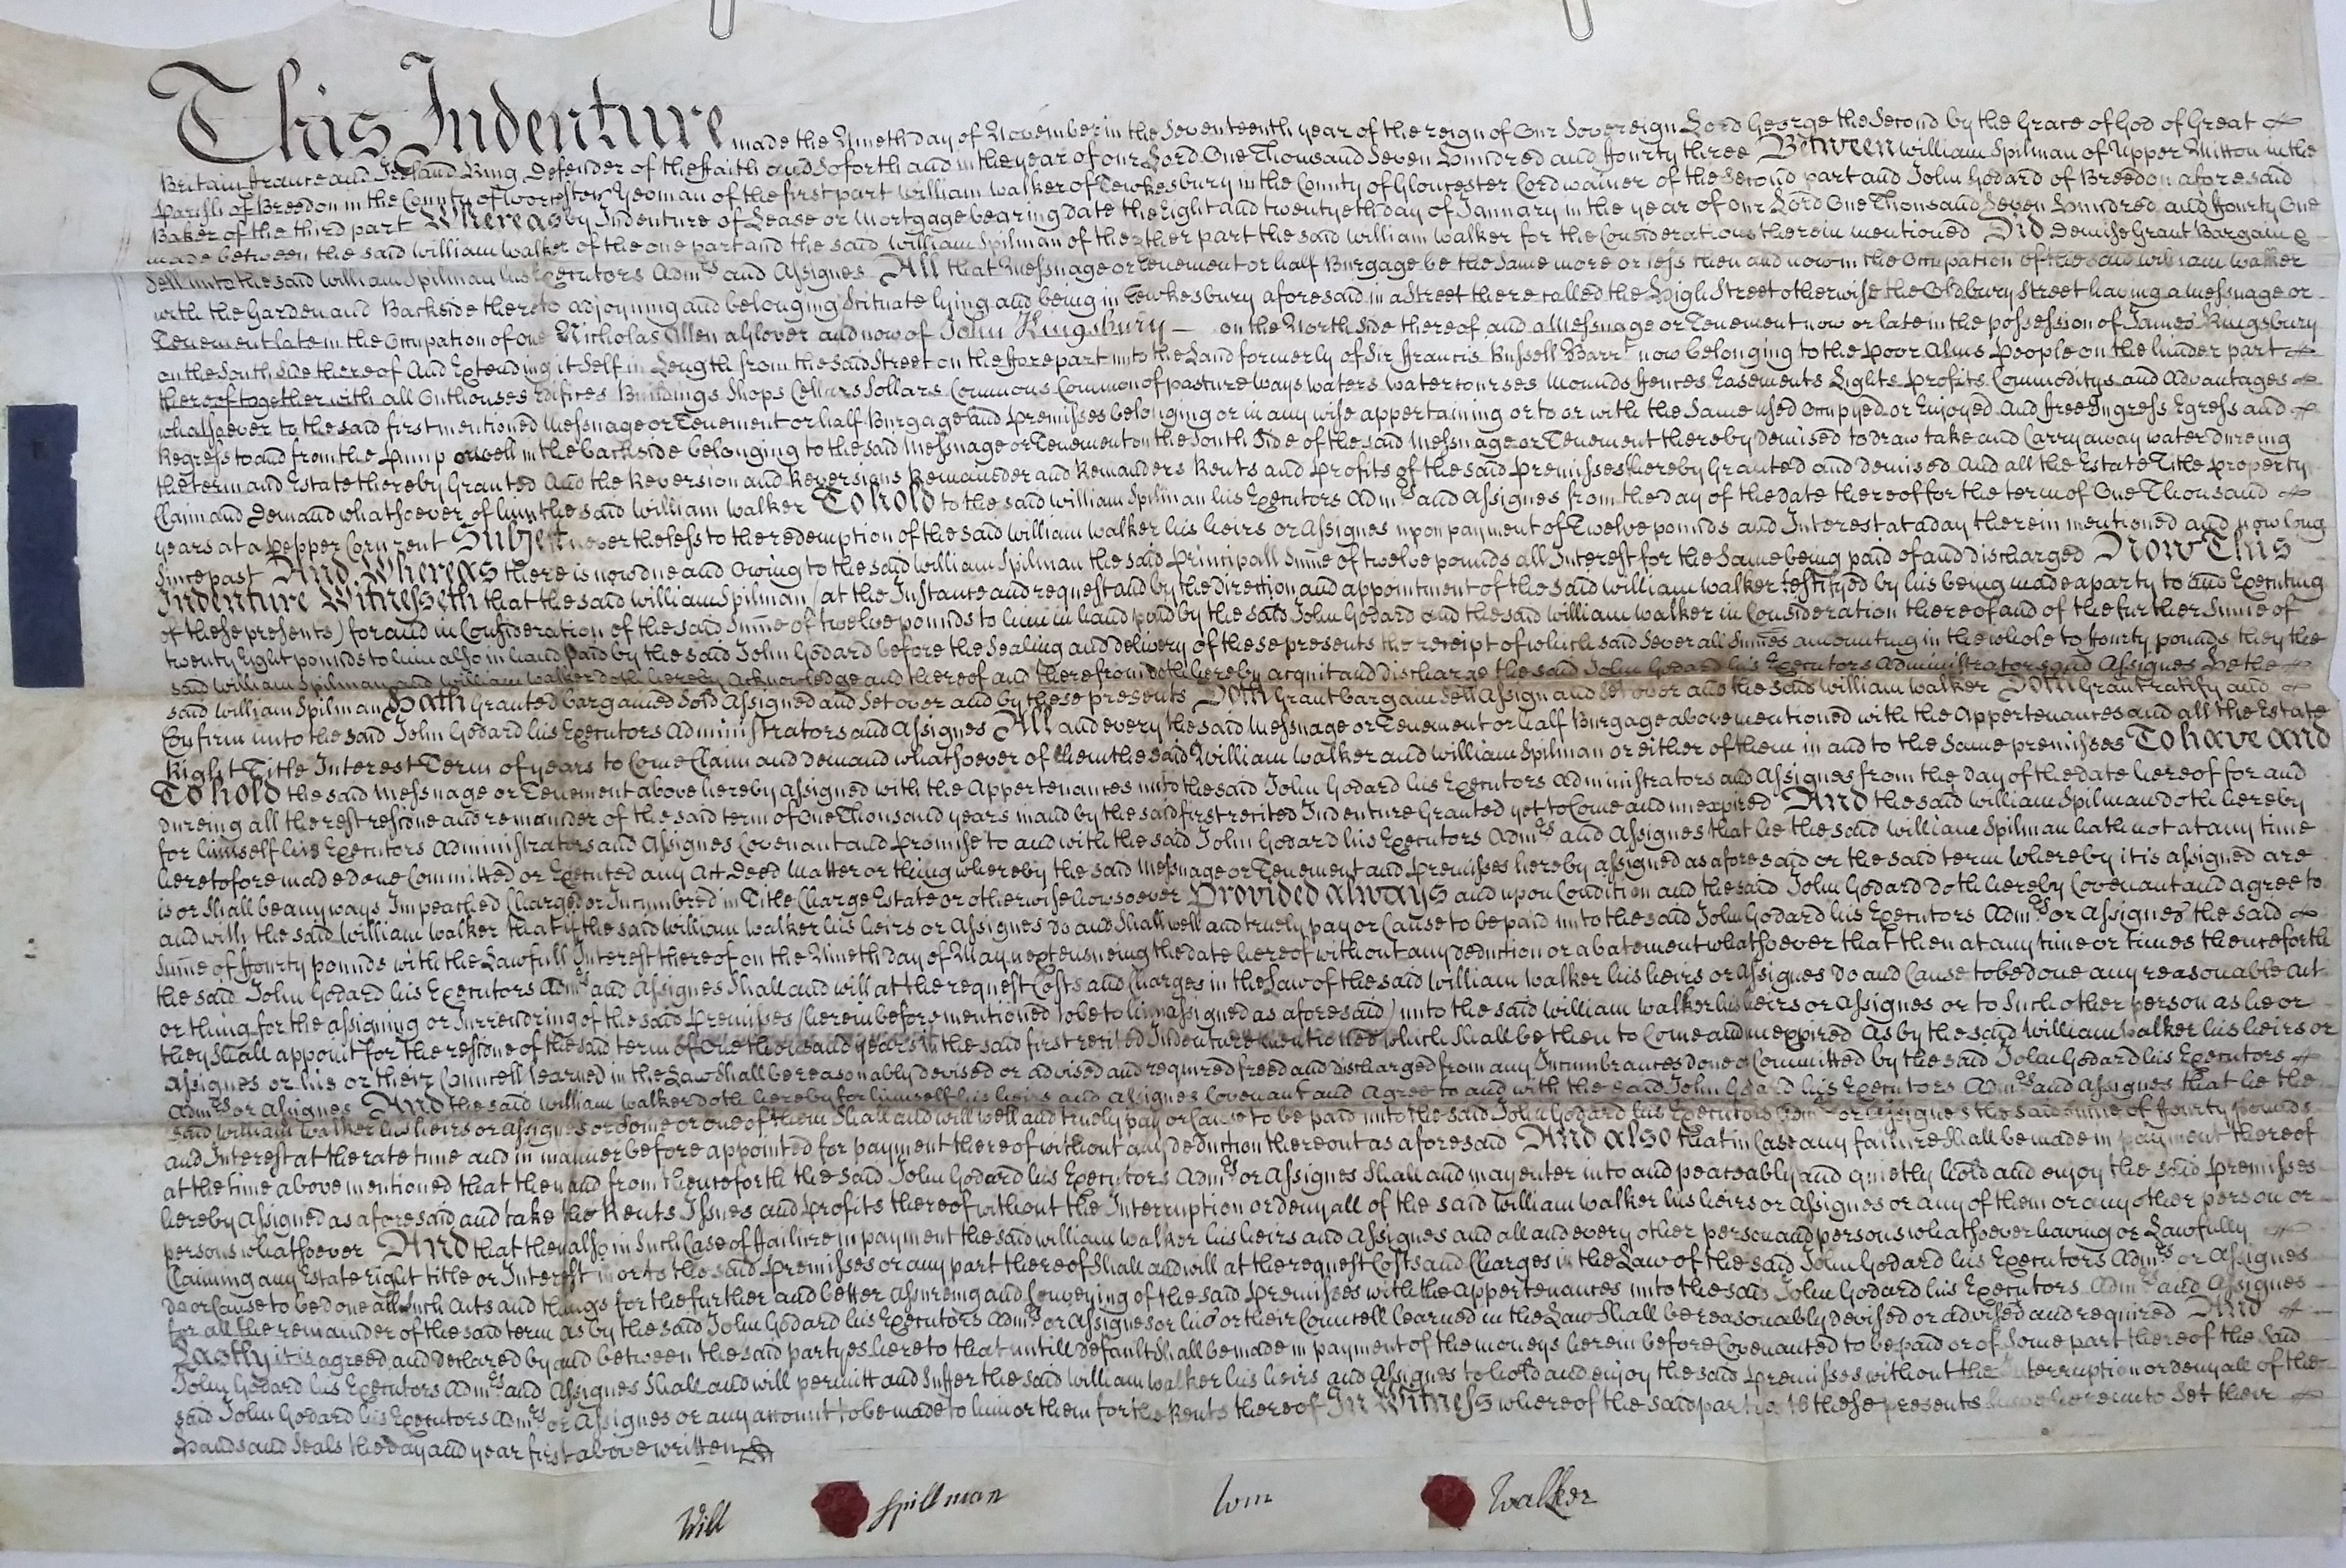 This Indenture made the Nineth day of November in the Seventeenth year of the reign of Our Sovereign Lord George the Second by the Grace of God of Great
Britain France and Ireland King Defender of the ffaith and Soforth and in the year of our Lord One Thousand Seven Hundred and ffourty three Between William Spilman of Upper Mitton in the
Parish of Breedon in the County of Worcester Yeoman of the first part William Walker of Tewkesbury in the County of Gloucester Cordwainer of the Second part and John Godard of Breedon aforesaid
Baker of the third part Whereas by Indenture of Lease or Mortgage bearing date the Eight and twentyeth day of January in the year of our Lord One Thousand Seven Hundred and ffourty One
made between the said William Walker of the one part and the said William Spilman of the other part the said William Walker for the Considerations therein mentioned Did Demise Grant Bargain &
Sell unto the said William Spilman his Executors Admrs and Assignes All that Messuage or Tenement or half Burgage be the Same more or less then and now in the Occupation of the said William Walker
with the Garden and Backside thereto adjoyning and belonging Scituate lying and being in Tewkesbury aforesaid in a Street there called the High Street otherwise the Oldbury Street having a Messuage or
Tenement late in the Occupation of one Nicholas Allen a Glover and now of John Kingsbury on the North Side thereof and a Messuage or Tenement now or late in the possession of James Kingsbury
on the South Side thereof And Extending it Self in Length from the said Street on the fforepart unto the Land formerly of Sir ffrancis Russell Barrt now belonging to the Poor Alms People on the hinder part
thereof together with all Outhouses Edifices Buildings Shops Cellars Sollars Commons Common of pasture Ways Waters Watercourses Mounds ffences Easements Lights Profits Commoditys and Advantages
whatsoever to the said first mentioned Messuage or Tenement or half Burgage and Premisses belonging or in any wise appertaining or to or with the Same used Occupyed or Enjoyed And ffree Ingress Egress and
Regress to and from the Pump or Well in the backside belonging to the said Messuage or Tenement on the South Side of the said Messuage or Tenement thereby demised to draw take and Carry away water dureing
the term and Estate thereby Granted And the Reversion and Reversions Remainder and Remanders Rents and Profits of the said Premisses thereby Granted and demised And all the Estate Title property
Claim and Demand whatsoever of him the said William Walker To hold to the said William Spilman his Executors Admrs and Assignes from the day of the date thereof for the term of One Thousand
years at a Pepper Corn rent Subject nevertheless to the redemption of the said William Walker his heirs or Assignes upon payment of Twelve pounds and Interest at a day therein mentioned and now long
Since past And Whereas there is now due and Owing to the said William Spilman the said Principall Sume of twelve pounds all Interest for the Same being paid of and discharged Now This
Indenture Witnesseth that the said William Spilman (at the Instance and request and by the direction and appointment of the said William Walker testifyed by his being made a party to and Executing
of these presents) for and in Consideration of the said Sume of twelve pounds to him in hand paid by the said John Godard and the said William Walker in Consideration thereof and of the further Sume of
twenty Eight pounds to him also in hand paid by the said John Godard before the Sealing and delivery of these presents the receipt of which said Severall Sumes amounting in the whole to ffourty pounds they the
said William Spilman and William Walker doth hereby Acknowledge and thereof and therefrom doth hereby acquit and discharge the said John Godard his Executors Administrators and Assignes He the
said William Spilman Hath Granted bargained Sold Assigned and Set over and by these presents Doth Grant bargain Sell Assign and Set over and the said William Walker Doth Grant ratify and
Confirm unto the said John Godard his Executors Administrators and Assignes All and every the said Messuage or Tenement or half Burgage above mentioned with the Appertenances and all the Estate
Right Title Interest Term of years to Come Claim and demand whatsoever of them the said William Walker and William Spilman or either of them in and to the Same premisses To have and
To hold the said Messuage or Tenement above hereby Assigned with the Appertenances unto the said John Godard his Executors Administrators and Assignes from the day of the date hereof for and
dureing all the rest residue and remainder of the said term of One Thousand years in and by the said first recited Indenture Granted yet to Come and unexpired And the said William Spilman doth hereby
for himself his Executors Administrators and Assignes Covenant and Promise to and with the said John Godard his Executors Admrs and Assignes that he the said William Spilman hath not at any time
heretofore made done Committed or Executed any Act Deed Matter or thing whereby the said Messuage or Tenement and Premisses hereby assigned as aforesaid or the said term whereby it is assigned are
is or Shall be any ways Impeached Charged or Incumbred in Title Charge Estate or otherwise howsoever Provided always and upon Condition and the said John Godard doth hereby Covenant and agree to
and with the said William Walker that if the said William Walker his heirs or Assignes do and Shall well and truely pay or Cause to be paid unto the said John Godard his Executors Admrs or Assignes the said
Sume of ffourty pounds with the Lawfull Interest thereof on the Nineth day of May next ensueing the date hereof without any deduction or abatement whatsoever that then at any time or times thenceforth
the said John Godard his Executors Admrs and Assignes Shall and will at the request Costs and Charges in the Law of the said William Walker his heirs or Assignes do and Cause to be done any reasonable Act
or thing for the assigning or Surrendring of the said Premises (herein before mentioned to be to him assigned as aforesaid) unto the said William Walker his heirs or Assignes or to Such other person as he or
they Shall appoint for the residue of the said term of One thousand years in the said first recited Indenture mentioned which Shall be then to Come and unexpired As by the said William Walker his heirs or
Assignes or his or their Councell learned in the Law Shall be reasonably devised or advised and required freed and discharged from any Incumbrances done or Committed by the said John Godard his Executors
Admrs or Assignes And the said William Walker doth hereby for himself his heirs and Assignes Covenant and Agree to and with the said John Godard his Executors Admrs and Assignes that he the
said William Walker his heirs or Assignes or Some or one of them Shall and will well and truely pay or Cause to be paid unto the said John Godard his Executors Admrs or Assignes the said Sume of ffourty pounds
and Interest at the rate time and in manner before appointed for payment thereof without any deduction thereout as aforesaid And also that in Case any failure Shall be made in payment thereof
at the time above mentioned that then and from thenceforth the said John Godard his Executors Admrs or Assignes Shall and may enter into and peaceably and quietly hold and enjoy the said Premisses
hereby Assigned as aforesaid and take the Rents Issues and Profits thereof without the Interruption or denyall of the said William Walker his heirs or Assignes or any of them or any other person or
persons whatsoever And that then also in Such Case of ffailure in payment the said William Walker his heirs and Assignes and all and every other person and persons whatsoever having or Lawfully
Claiming any Estate right title or Interest in or to the said Premisses or any part thereof Shall and will at the request Costs and Charges in the Law of the said John Godard his Executors Admrs or Assignes
do or Cause to be done all Such Acts and things for the further and better assureing and Conveying of the said Premisses with the Appertenances unto the said John Godard his Executors Admrs and Assignes
for all the remainder of the said term as by the said John Godard his Executors Admrs or Assignes or his or their Councell learned in the Law Shall be reasonably devised or advised and required And
Lastly it is agreed and declared by and between the said partyes hereto that untill default Shall be made in payment of the moneys herein before Covenanted to be paid or of Some part thereof the said
John Godard his Executors Admrs and Assignes Shall and will permitt and Suffer the said William Walker his heirs and Assignes to hold and enjoy the said Premisses without the Interruption or denyall of the
said John Godard his Executors Admrs or Assignes or any account to be made to him or them for the Rents thereof In Witness whereof the said parties to these presents have hereunto Set their
Hands and Seals the day and year first above written
Will Spillman Wm Walker